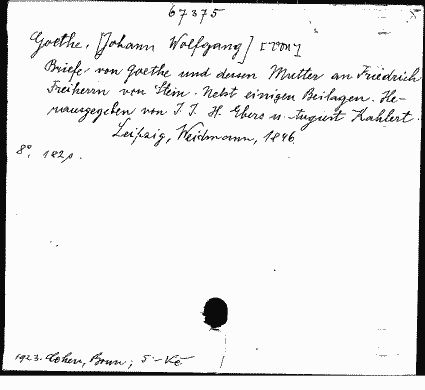 67375
Goethe, [Johann Wolfgang] [von]
Briefe von Goethe und dessen Mutter an Friedrich
Freiherrn von Stein. Nebst einigen Beilagen. He-
rausgegeben von J. J. H. Ebers u. August Kahlert.
Leipzig, Weidmann, 1846
8°. 182 p.
1923. Cohen, Bonn; 5 - Kč